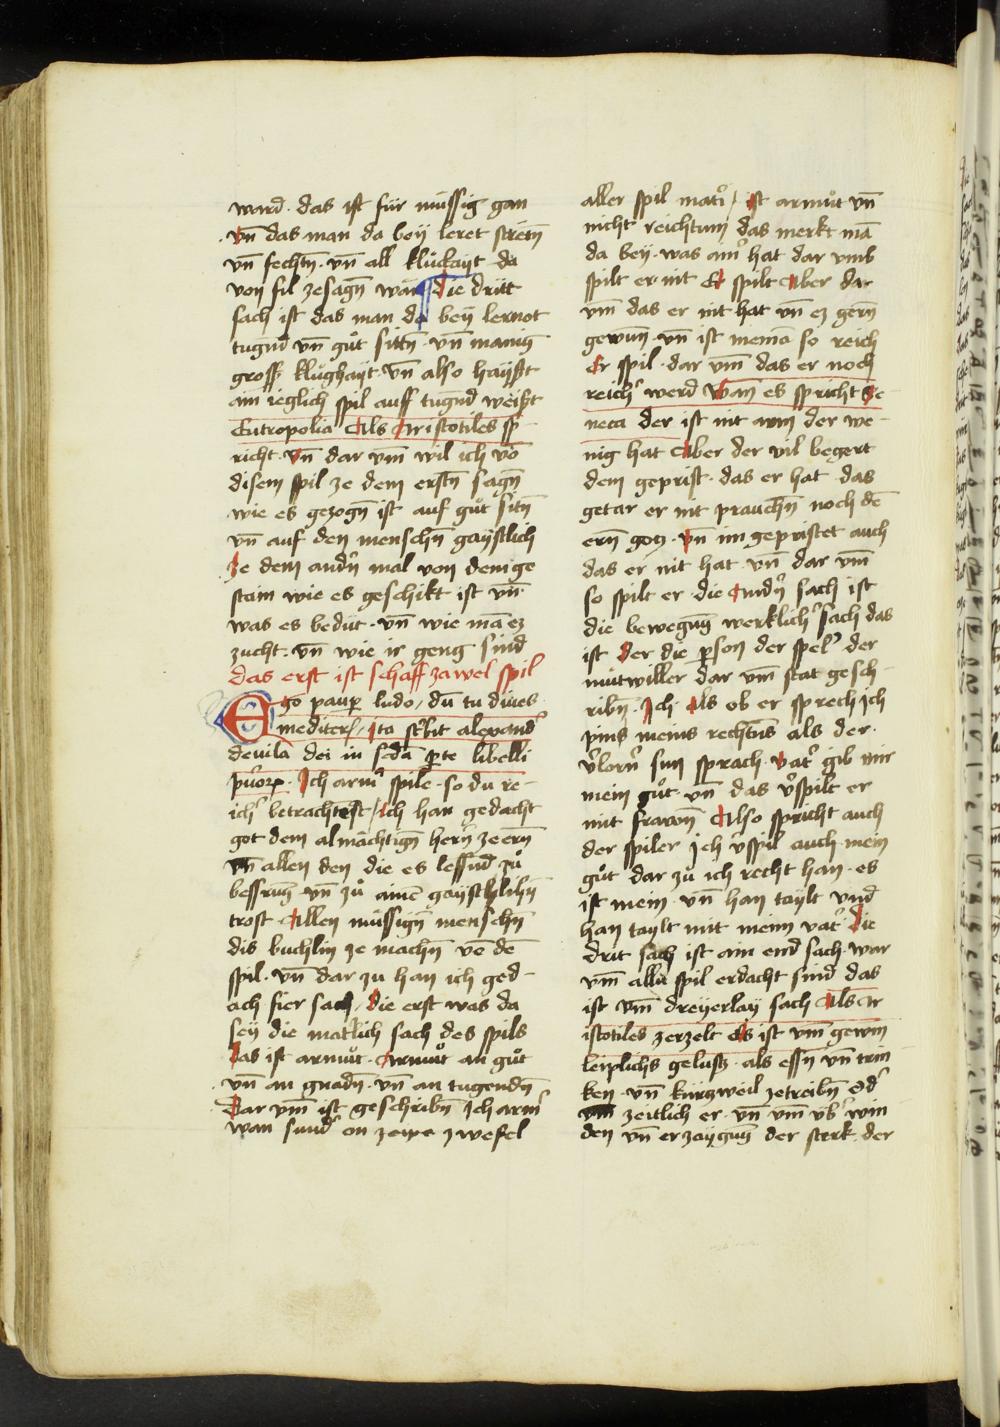 ward. das ist für müssig gan
vn̄ das man da beÿ leret stretn̄
vn̄ fechtn̄. vn̄ all klückayt da
von fil zesagn̄ wär die dritt
sach ist das man da beÿ lernot
tugnd vn̄ gůt sittn̄. vn̄ manig
gross klůghayt. vn̄ also haÿsst
ain ieglich spil auff tugnd weist
Eutropolia Als Aristotiles sp
richt. vn̄ dar vm̄ wil ich vō
disem spil ze dem erstn̄ sagn̄
wie es gezogn̄ ist auf gůt sitn̄
vn̄ auf den menschn̄ gaÿstlich
Ze dem andn̄ mal von dem ge
stain wie es geschikt ist vn̄
was es bedüt. vn̄ wie mā ez
zucht. vn̄ wie ir geng sind
das erst ist schaff zawel spil
Ego paup ludo, dū tu diues
mediteris, Ita scbit alexand
devila dei in scda pte libelli
Ich arm spile. so du re-
ich betrachtest, Ich han gedacht
got dem almächtign̄ hern̄ ze ern̄
vn̄ allen den die es lessnd zů
bessrung vn̄ zů ainē gaÿstlichn̄
trost Allen müssign̄ menschn̄
dis buchlin ze machn̄ vō dē
spil. vn̄ dar zu han ich ged-
ach fier sach, die erst was da
seÿ die matlich sach des spils
das ist armůt. Armůt an gůt
vn̄ an gnadn̄. vn̄ an tugendn̄
Dar vm̄ ist geschribn̄ Ich arm
wan sünd on zewe zwefel
aller spil mati, ist armůt vn̄
nicht reichtum das merkt mā
da beÿ. was ain hat dar vmb
spilt er nit Er spilt Aber dar
vm̄ das er nit hat vn̄ ez gern̄
gewun̄. vn̄ ist niemā so reich
Er spil. dar vm̄ das er noch
reich werd Wan es spricht Se
neca der ist nit arm der we-
nig hat Aber der vil begert
dem geprist. das er hat das
getar er nit prauchn̄ noch dē
ern̄ gotz. vn̄ im gepristet auch
das er nit hat. vn̄ dar vm̄
so spilt er die Andn̄ sach ist
die bewegung werklich sach das
ist der die pson der spel der
můtwiller dar vm̄ stat gesch-
ribn̄. Ich. Als ob er sprech ich
pins meins rechtens als der.
vlorn sun sprach. vat gib mir
mein gůt. vn̄ das vspilt er
mit frawn̄ Also spricht auch
der spiler Ich vspil auch mein
gůt dar zů ich recht han. es
ist mein. vn̄ han taÿlt vnd
han taylt mit meim vat Die
drit sach ist ain end sach. war
vm̄ allü spil erdacht sind das
ist vm̄ dreÿerlaÿ sach Als Ar
istotiles zerzelt Es ist vm̄ gewin
leiplichs gelustz. als essn̄ vn̄ trin
ken. vn̄ kurzweil zetreibn̄ od
zeitlich er. vn̄ vm̄ vb win
den vn̄ erzaÿgung der sterk. der